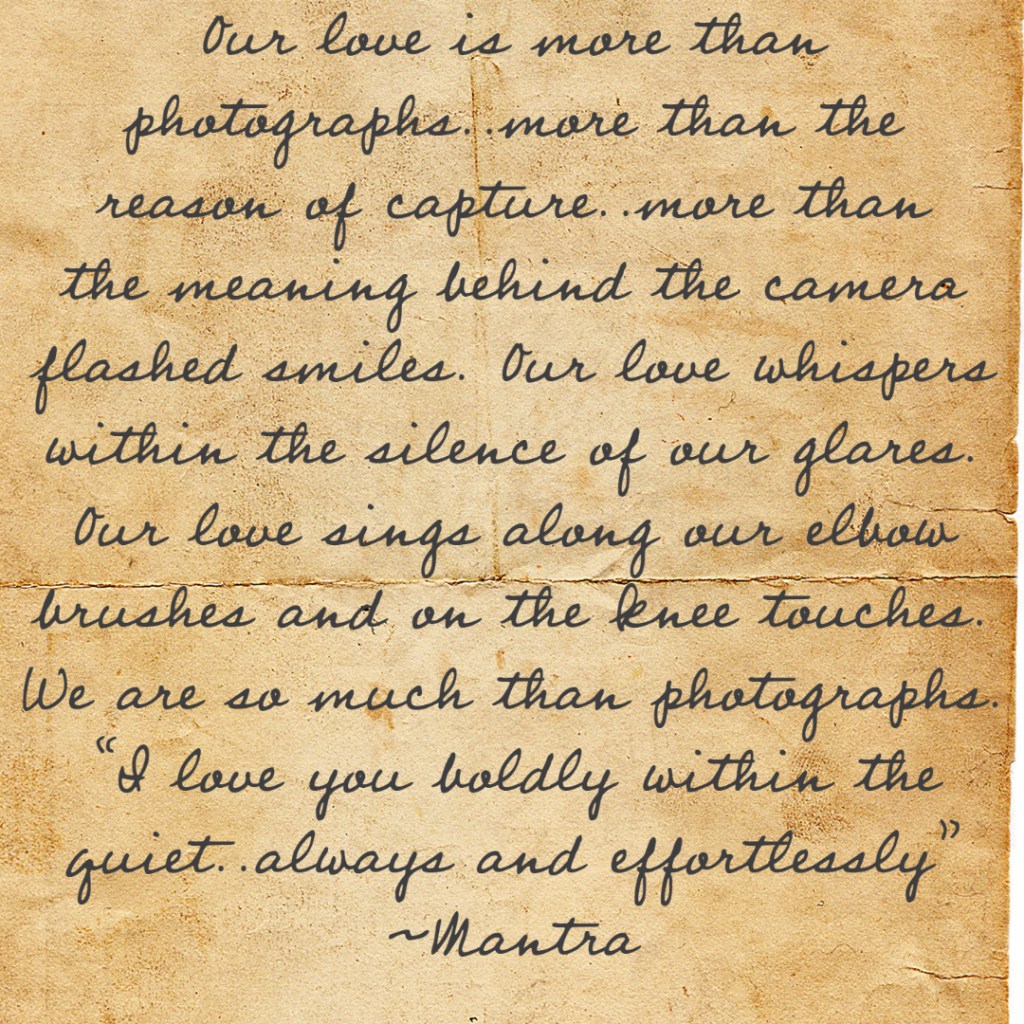 Our love is more than
photographs..more than the
reason of capture..more than
the meaning behind the camera
flashed smiles. Our love whispers
within the silence of our glares.
Our love sings along our elbow
brushes and on the knee touches.
We are so much than photographs.
“I love you boldly within the
quiet..always and effortlessly”
~Mantra